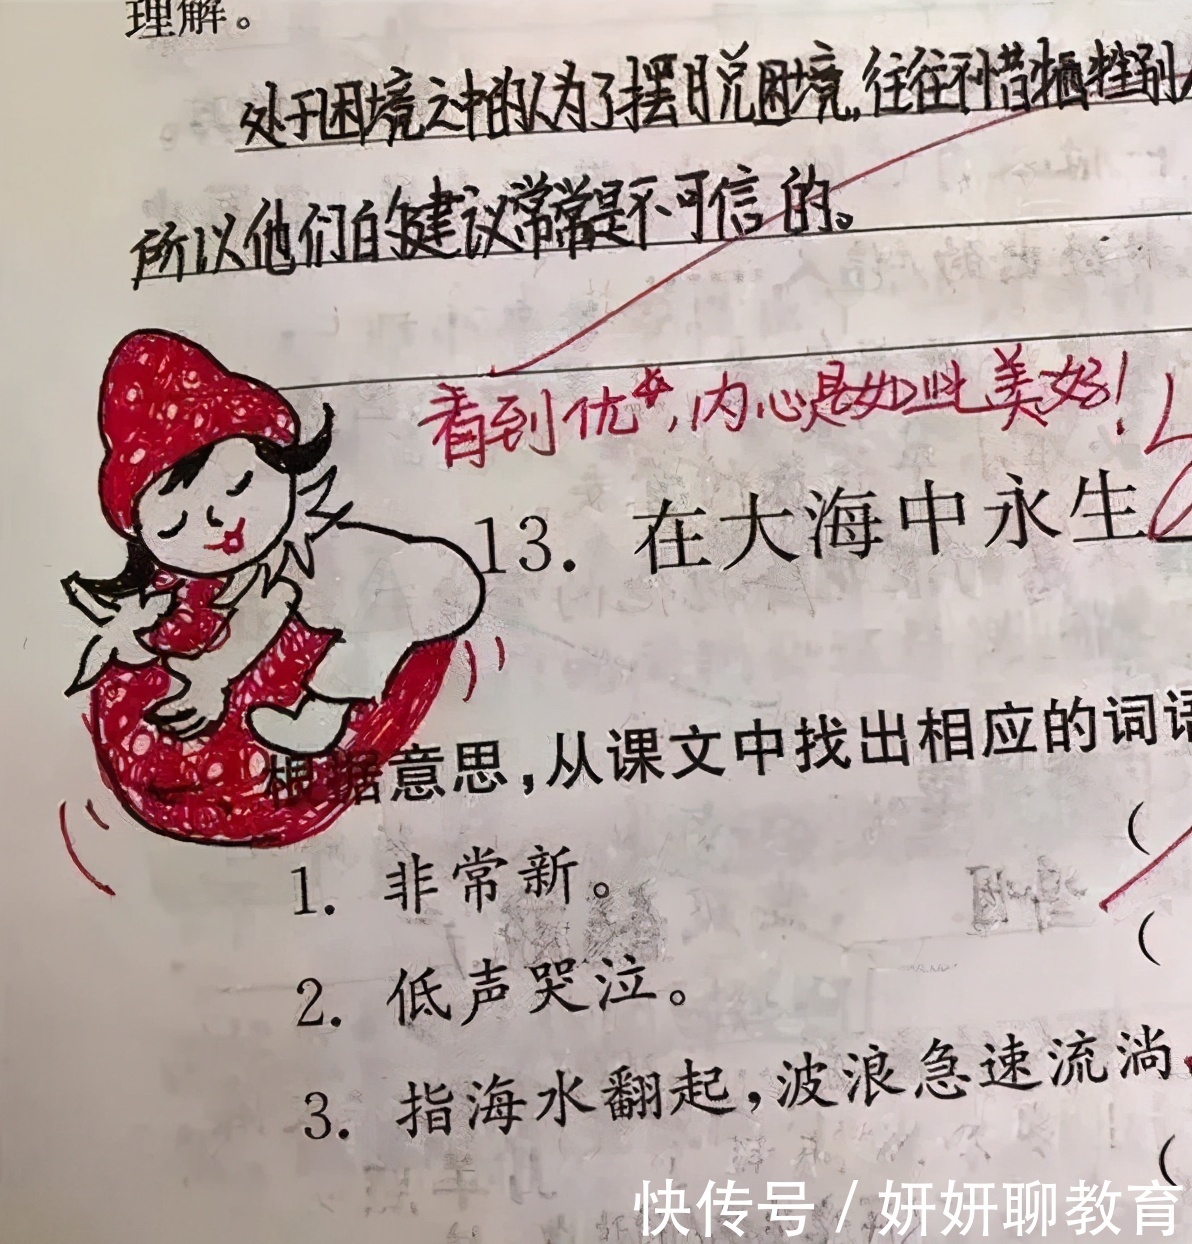 理解。
处于困境之中的人为了摆脱困境,往往不惜牺牲别
所以他们的建议常常是不可信的。
看到优*,内心是如此美好!
13. 在大海中永生
根据意思,从课文中找出相应的词语
(
1. 非常新。
(
2. 低声哭泣。
3. 指海水翻起,波浪急速流淌
(
快传号 / 妍妍聊教育